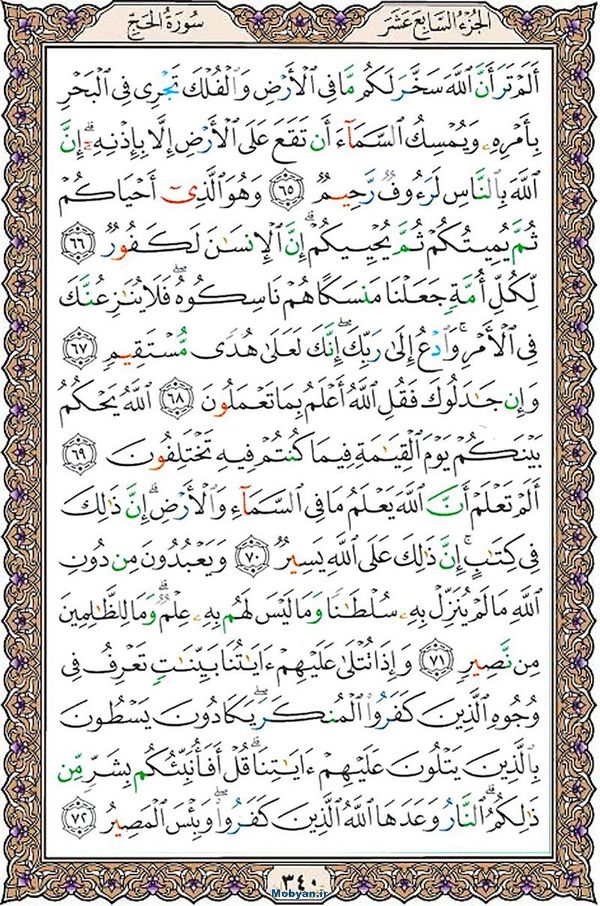 الجزء السابع عشر
سورة الحج
أَلَمْ تَرَ أَنَّ اللَّهَ سَخَّرَ لَكُم مَّا فِي الْأَرْضِ وَالْفُلْكَ تَجْرِي فِي الْبَحْرِ
بِأَمْرِهِ وَيُمْسِكُ السَّمَاءَ أَن تَقَعَ عَلَى الْأَرْضِ إِلَّا بِإِذْنِهِ ۗ إِنَّ
اللَّهَ بِالنَّاسِ لَرَءُوفٌ رَّحِيمٌ ﴿٦٥﴾ وَهُوَ الَّذِي أَحْيَاكُمْ
ثُمَّ يُمِيتُكُمْ ثُمَّ يُحْيِيكُمْ ۗ إِنَّ الْإِنسَانَ لَكَفُورٌ ﴿٦٦﴾
لِّكُلِّ أُمَّةٍ جَعَلْنَا مَنسَكًا هُمْ نَاسِكُوهُ ۖ فَلَا يُنَازِعُنَّكَ
فِي الْأَمْرِ ۚ وَادْعُ إِلَىٰ رَبِّكَ ۖ إِنَّكَ لَعَلَىٰ هُدًى مُّسْتَقِيمٍ ﴿٦٧﴾
وَإِن جَادَلُوكَ فَقُلِ اللَّهُ أَعْلَمُ بِمَا تَعْمَلُونَ ﴿٦٨﴾ اللَّهُ يَحْكُمُ
بَيْنَكُمْ يَوْمَ الْقِيَامَةِ فِيمَا كُنتُمْ فِيهِ تَخْتَلِفُونَ ﴿٦٩﴾
أَلَمْ تَعْلَمْ أَنَّ اللَّهَ يَعْلَمُ مَا فِي السَّمَاءِ وَالْأَرْضِ ۗ إِنَّ ذَٰلِكَ
فِي كِتَابٍ ۚ إِنَّ ذَٰلِكَ عَلَى اللَّهِ يَسِيرٌ ﴿٧٠﴾ وَيَعْبُدُونَ مِن دُونِ
اللَّهِ مَا لَمْ يُنَزِّلْ بِهِ سُلْطَانًا وَمَا لَيْسَ لَهُم بِهِ عِلْمٌ ۗ وَمَا لِلظَّالِمِينَ
مِن نَّصِيرٍ ﴿٧١﴾ وَإِذَا تُتْلَىٰ عَلَيْهِمْ ءَايَاتُنَا بَيِّنَاتٍ تَعْرِفُ فِي
وُجُوهِ الَّذِينَ كَفَرُوا الْمُنكَرَ ۖ يَكَادُونَ يَسْطُونَ
بِالَّذِينَ يَتْلُونَ عَلَيْهِمْ ءَايَاتِنَا ۗ قُلْ أَفَأُنَبِّئُكُم بِشَرٍّ مِّن
ذَٰلِكُمُ ۗ النَّارُ وَعَدَهَا اللَّهُ الَّذِينَ كَفَرُوا ۖ وَبِئْسَ الْمَصِيرُ ﴿٧٢﴾
٣٤٠
Mobyan.ir